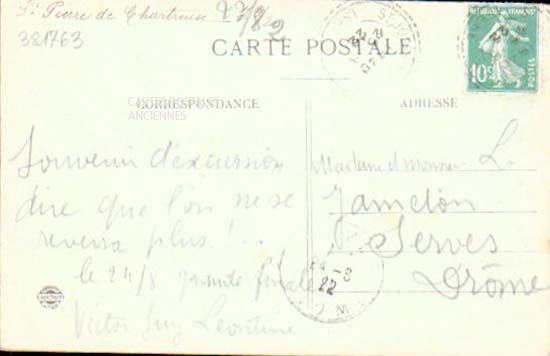 St Pierre de Chartreuse
381763
CARTE POSTALE
CARTES POSTALES
ANCIENNES
CORRESPONDANCE
ADRESSE
10c
POSTES
Souvenir d'excursion
dire que l'on ne se
reverra plus !..
le 24/8 grande finale
Victor Guy Léontine
Madame et monsieur L.
Jamelon
Serves
Drôme
24 -8
22